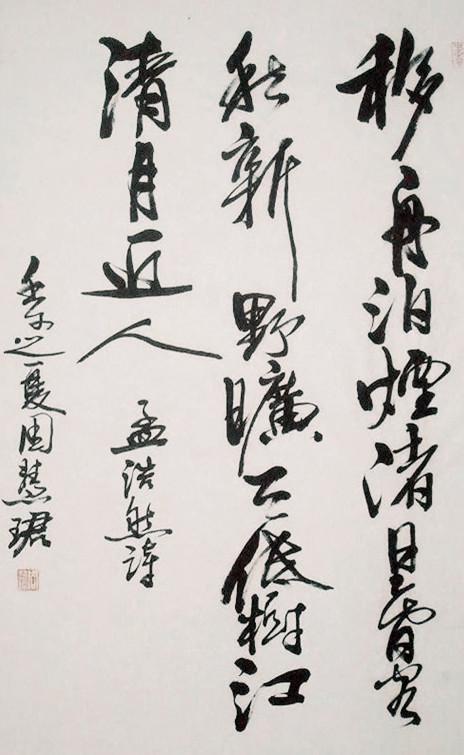 移舟泊煙渚日暮客
愁新野曠天低樹江
清月近人
孟浩然詩
壬午之夏周慧珺